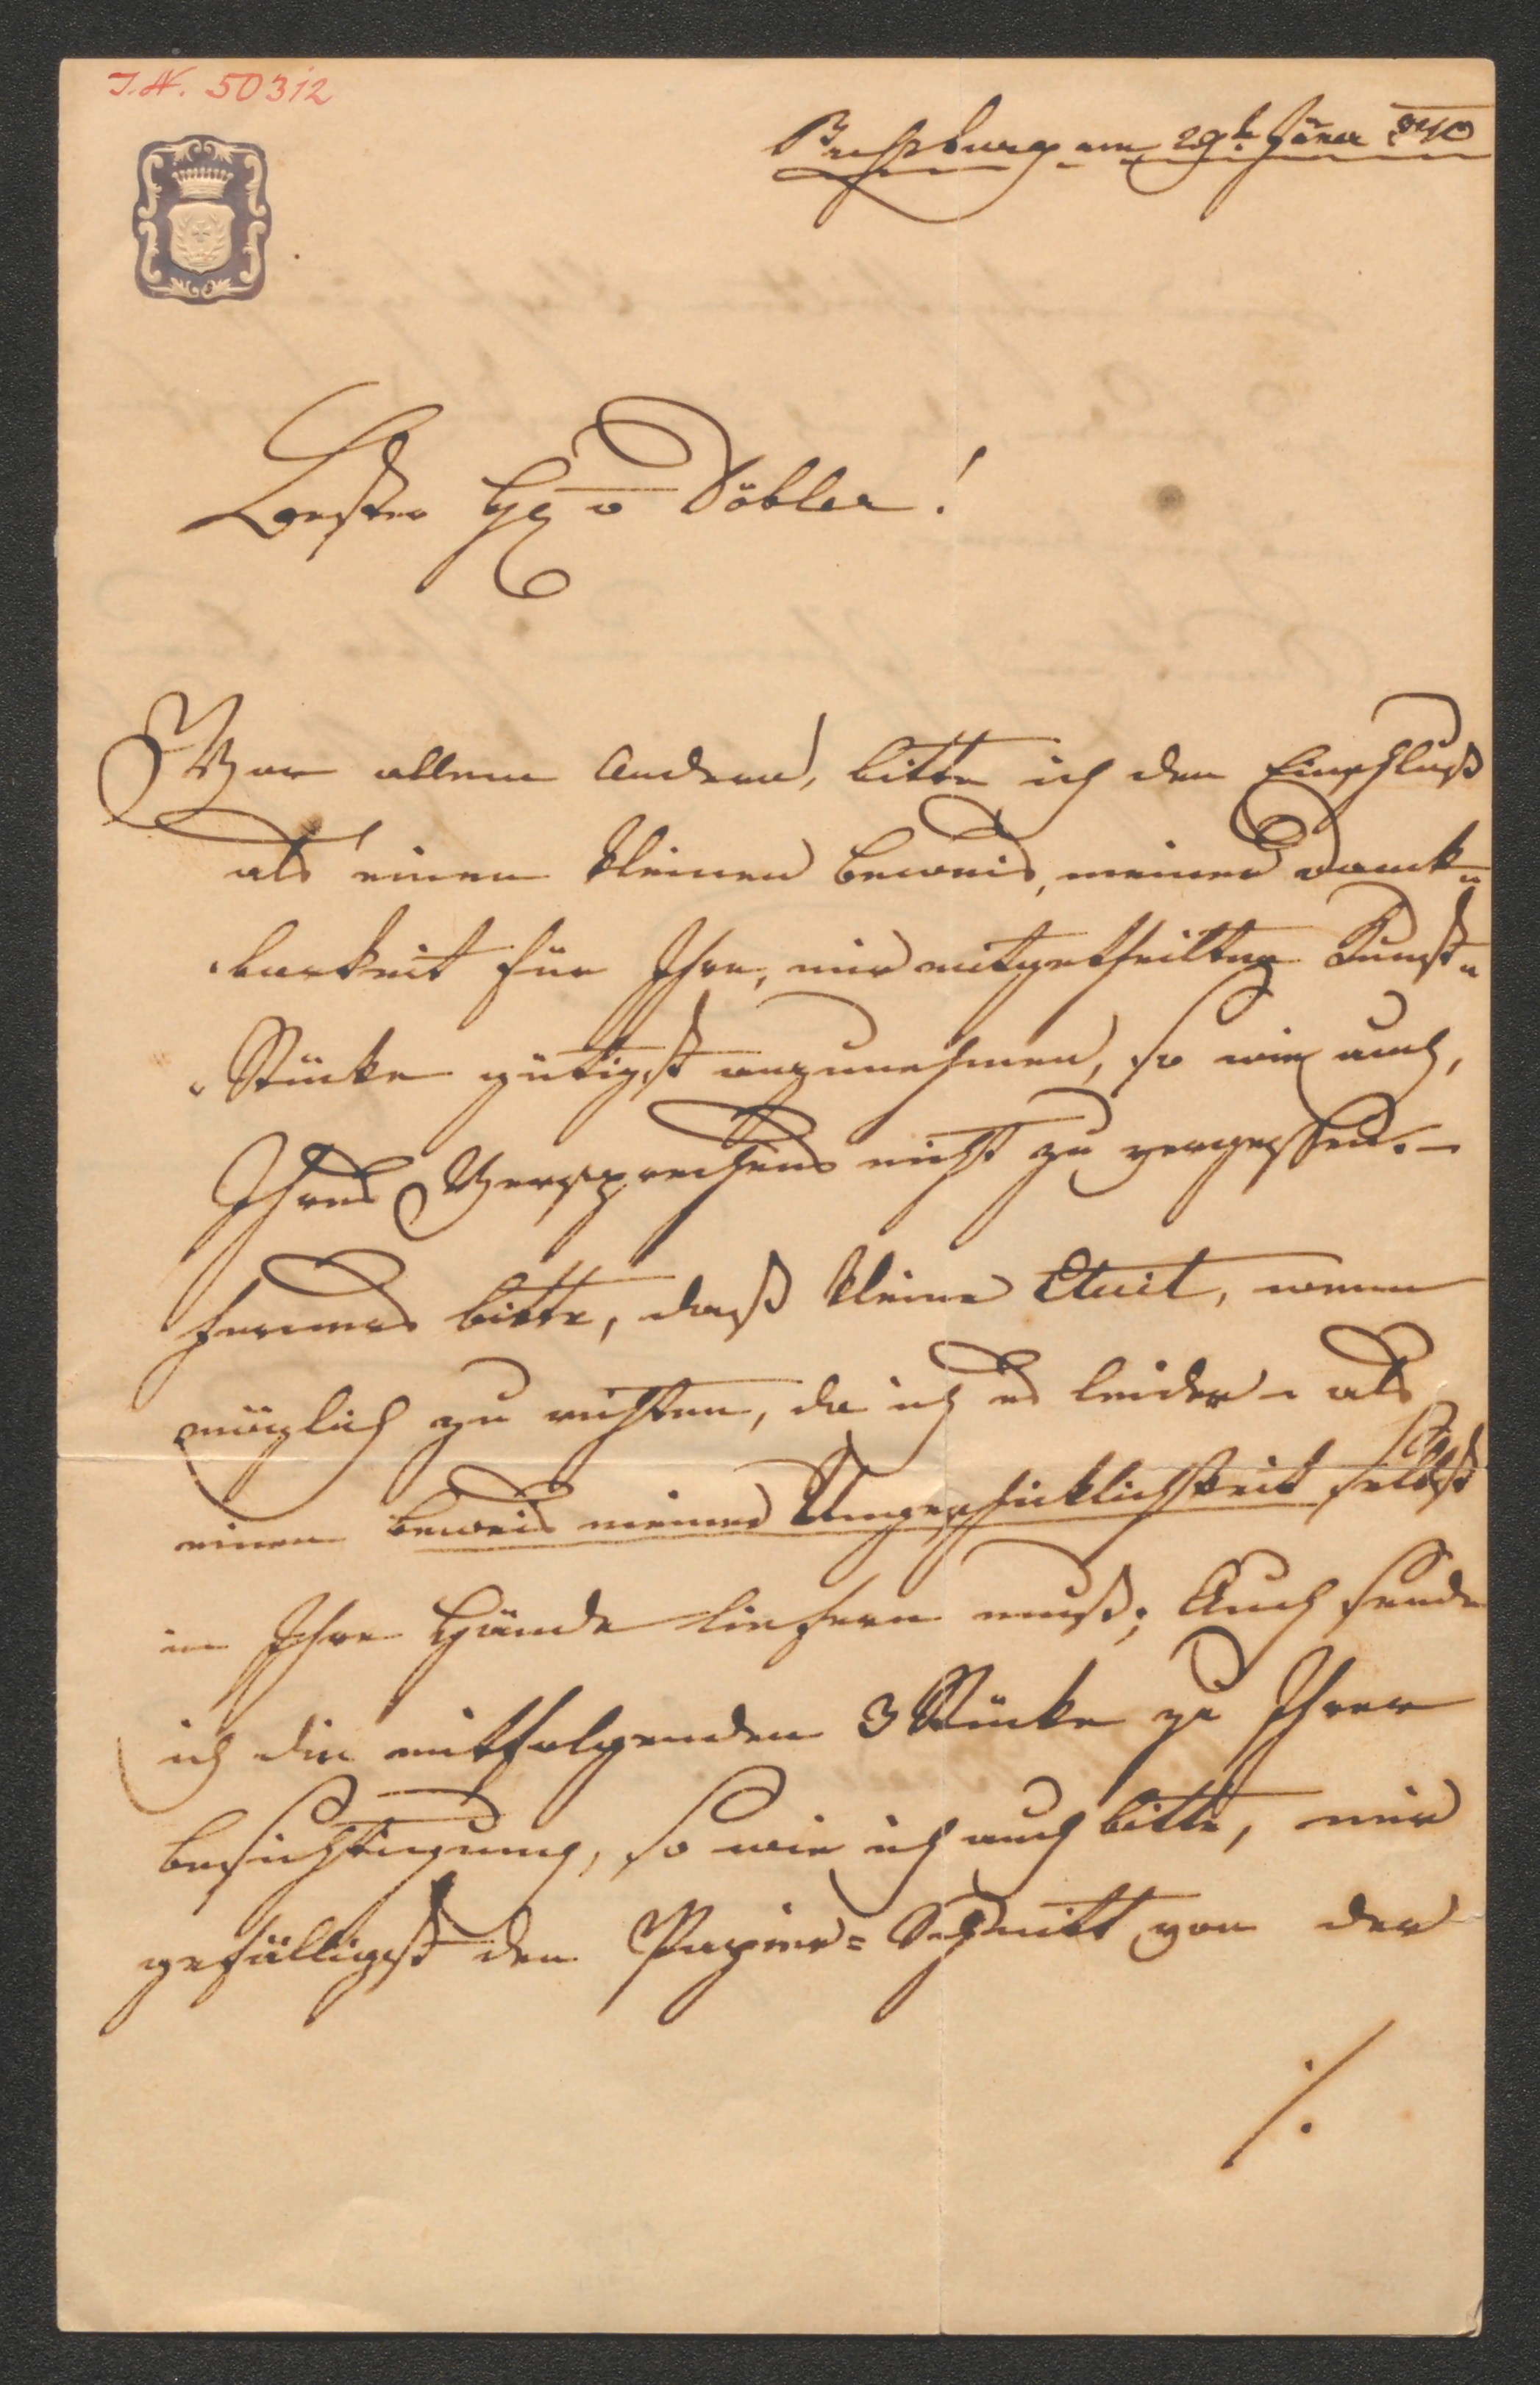 I.N. 50312
Preßburg am 29t. Jäner 840
Bester Hr v Döbler!
Vor allem Andern, bitte ich den Einschluß
als einen kleinen Beweis, meiner Dank=
barkeit für Ihre, mir mitgetheilten Kunst=
Stücke gütigst anzunehmen, so wie auch,
Ihres Versprechens nicht zu vergessen. –
Ferners bitte, daß kleine Etuit, wenn
möglich zu richten, da ich es leider – als
einen Beweis meiner Ungeschicklichkeit selbst
in Ihre Hände liefern muß; Auch sende
ich die mitfolgenden 3 Stücke zu Ihrer
Besichtigung, so wie ich auch bitte, mir
gefälligst den Papier= Schnitt von der
./.